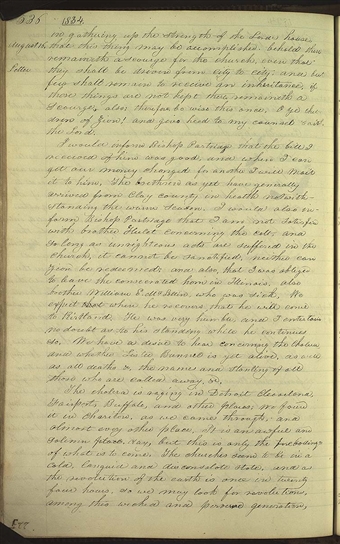 535 1834.
no gathering up the strength of the Lord's house,
August 16. that this thing may be accomplished: behold there
remaineth a scourge for the church, even that
Letter they shall be driven from city to city; and but
few shall remain to receive an inheritance; if
those things are not kept, there remaineth a
scourge, also; therefore be wise this once, O ye children
of Zion! and give heed to my counsel saith
the Lord.
I would inform Bishop Partridge that the bill I
received of him was good, and when I can
get our money changed for another I will mail
it to him. The brethren as yet have generally
arrived from Clay county in health notwith-
standing the warm season. I would also in-
form Bishop Partridge that I am not satisfied
with brother concerning the colt; and
so long as unrighteous acts are suffered in the
church, it cannot be sanctified, neither can
Zion be redeemed; and also, that I was obliged
to leave the consecrated horse in Illinois, also
brother William E. McLellin, who was sick. We
expect that when he recovers that he will come
to Kirtland. He was very humble, and I entertain
no doubt as to his standing while he continues
so. We have a desire to hear concerning the cholera
and whether sister Bunnel is yet alive, as well
as all deaths & the names and standing of all
those who are called away, &c.
The cholera is raging in Detroit, Cleveland,
Fairport, Buffalo, and other places. We found
it in Chariton, as we came through, and
almost every other place. It is an awful and
solemn , say, but this is only the
of what is to come. The churches seem to be in a
cold, languid and disconsolate state, and as
the revolution of the earth is once in twenty
four hours, so we may look for revolutions,
among this wicked and perverse generation,